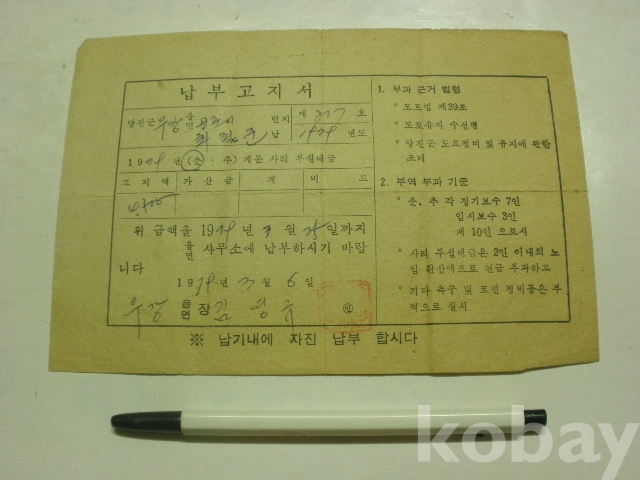 납부고지서
당진군 우강 읍면 리 번지 제 227 호
납 1979 년도
1979 년 (춘·추) 계분 사리 부설대금
고지액 가산금 계 비고
위 금액을 1979년 3월 25일까지
읍면 사무소에 납부하시기 바랍
니다
1979년 3월 6일
우강 읍면장 김영
※ 납기내에 자진 납부 합시다
1. 부과 근거 법령
° 도로법 제39조
° 도로유지 수선령
° 당진군 도로정비 및 유지에 관한
조례
2. 부역 부과 기준
° 춘, 추 각 정기보수 7인
임시보수 3인
계 10인 으로서
° 사리 부설대금은 2인 이내의 노
임 환산액으로 현금 부과하고
° 기타 측구 및 노변 정비등은 부
역으로 실시
kobay